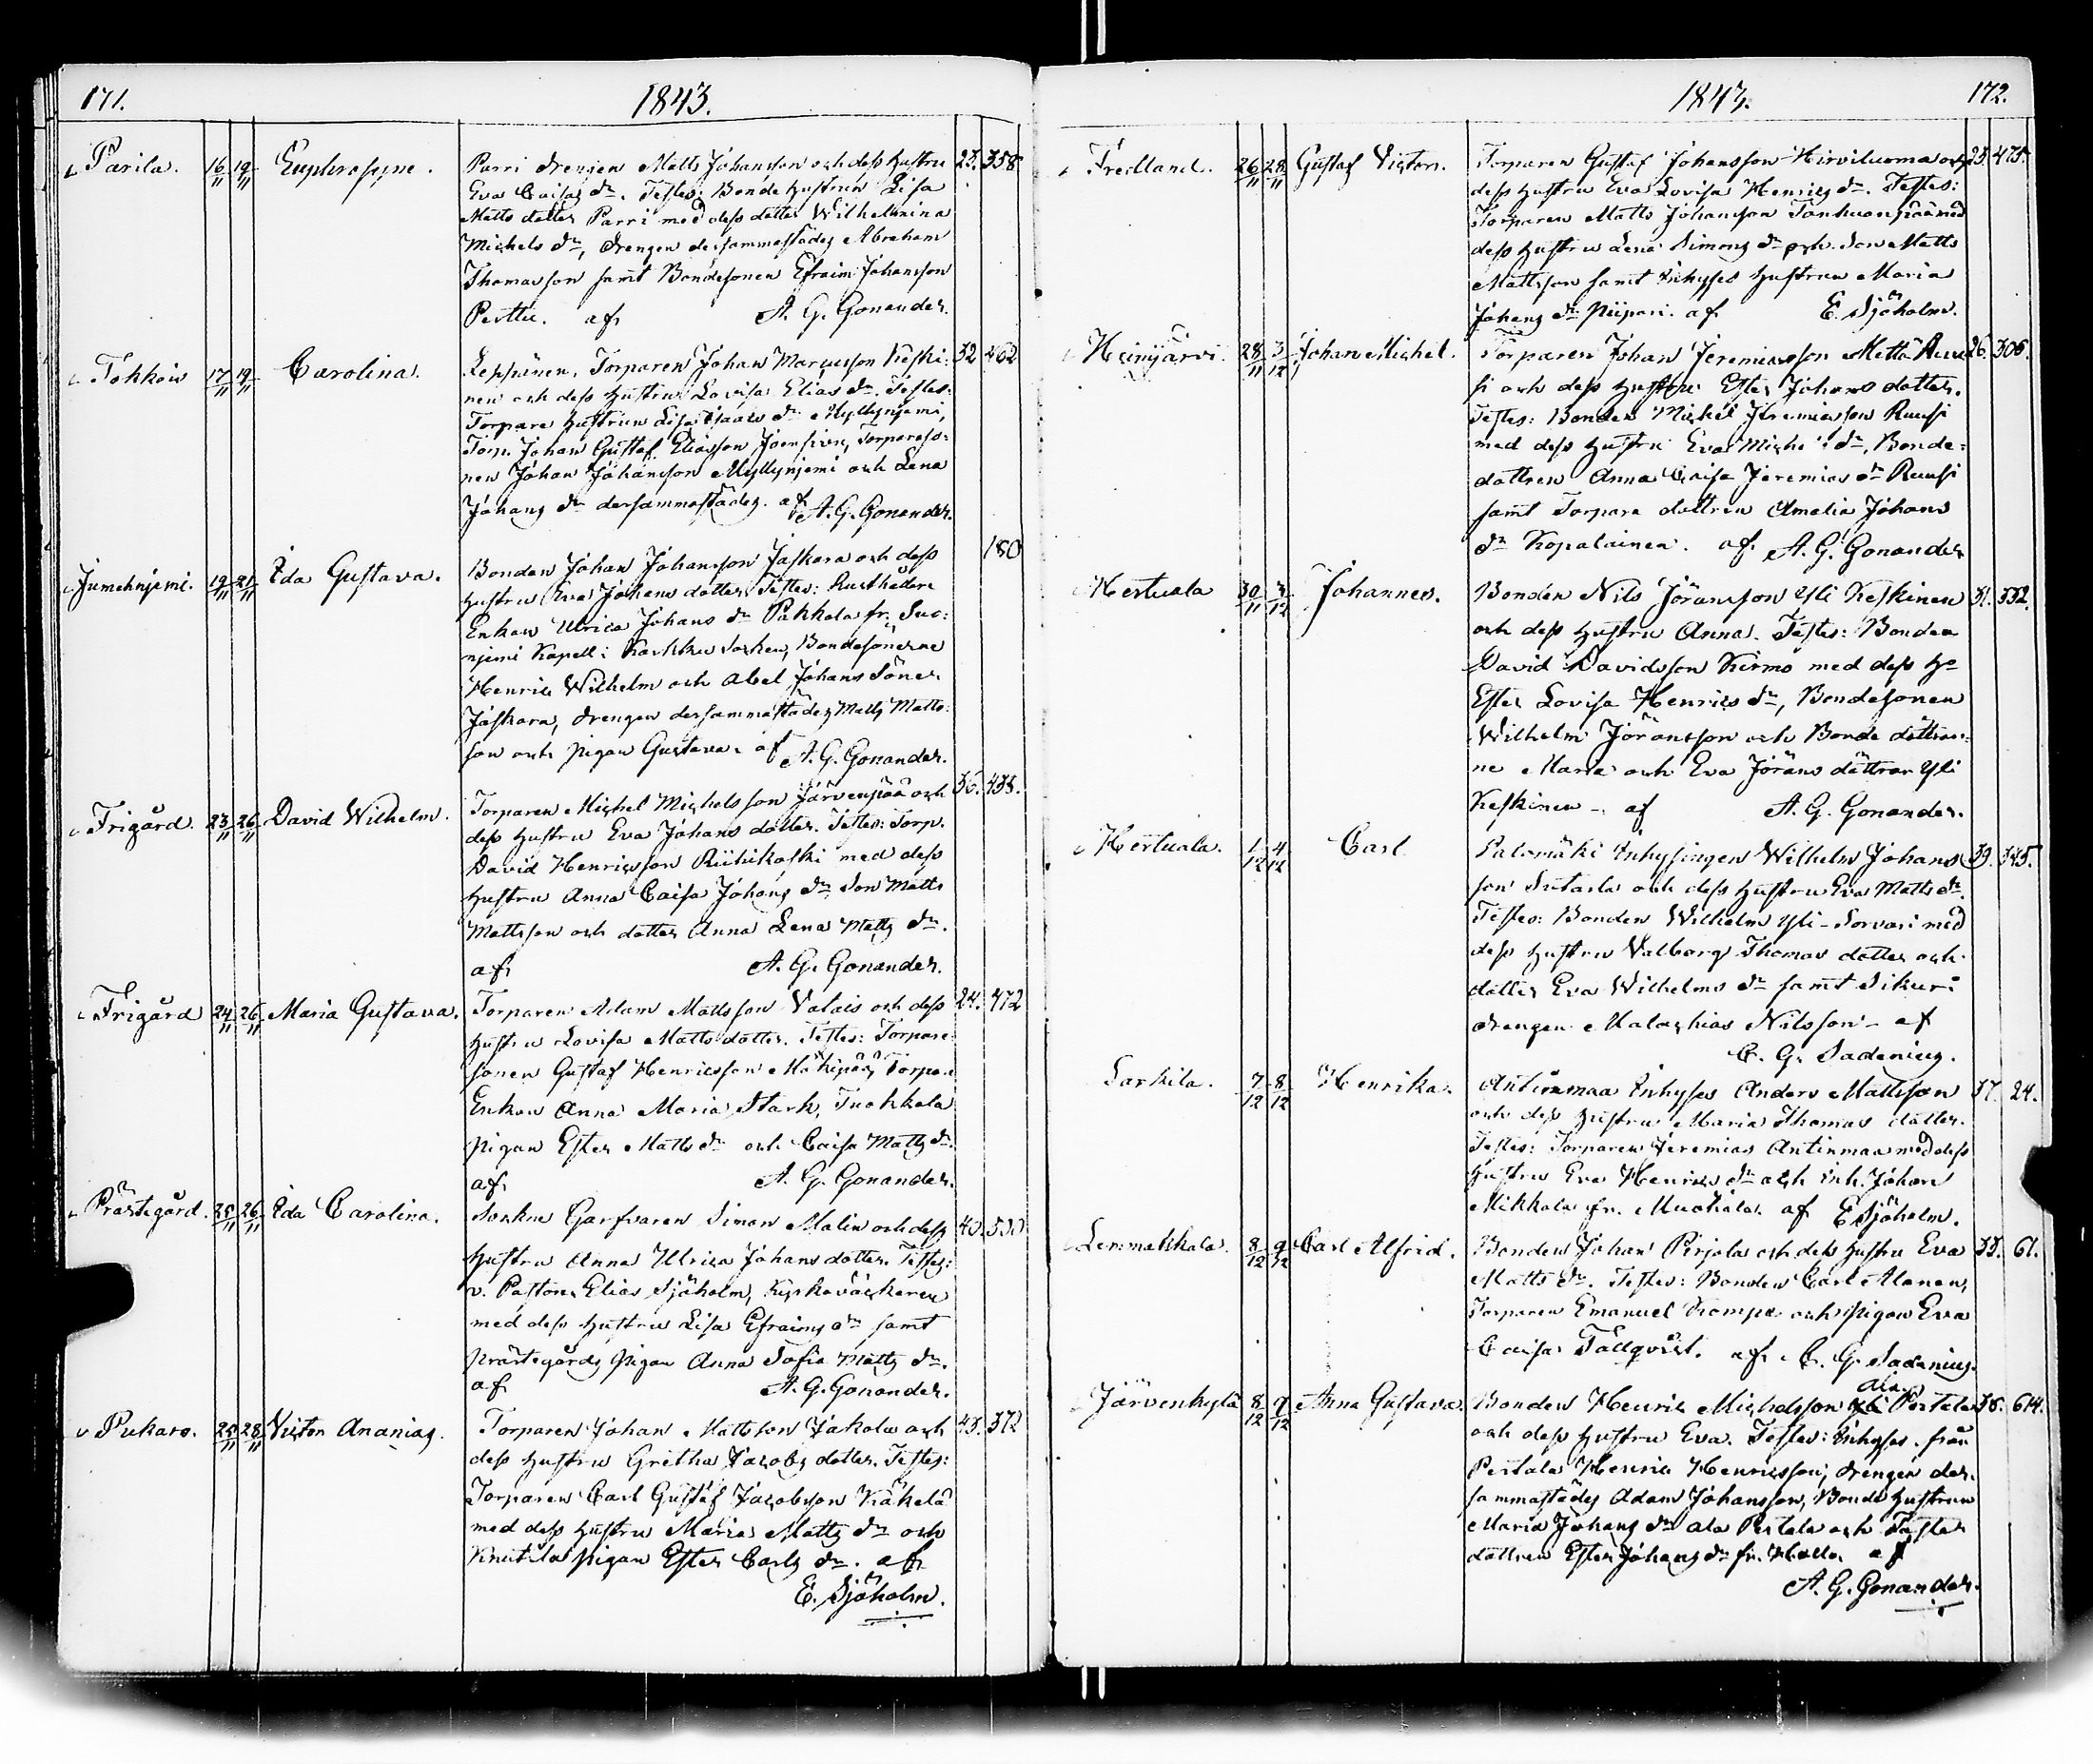 171. 1843.
Parila. 16/11 19/11 Euphrosyne. Parri drengen Matts Johansson och dess hustru 23. 358
Eva Caisa dr. Testes: Bonde hustrun Lisa
Matts dotter Parri med dess dotter Wilhelmina
Michels dr, drengen dersammastädes Abraham
Thomasson samt Bondesonen Efraim Johansson
Perttu. af A. G. Gonander.
Tokkois 17/11 19/11 Carolina. Leppänen, Torparen Johan Marcusson Keski- 32 462
nen och dess hustru Lovisa Elias dr. Testes:
Torpare hustrun Lisa Isaacs dr Myllynjemi,
Torp. Johan Gustaf Eliasson Joensivu, Torpareso-
nen Johan Johansson Myllynjemi och Lena
Johans dr dersammastädes. af A. G. Gonander.
Jumeknjemi. 19/11 21/11 Ida Gustava. Bonden Johan Johansson Jaskara och dess 180
hustru Eva Johans dotter. Testes: Rusthållare
Enkan Ulrica Johans dr Pakkala fr. Suo-
njemi Kapell i Karkku socken, Bondesönerne
Henric Wilhelm och Abel Johans Söner
Jaskara, drengen dersammastädes Matts Matts-
son och pigan Gustava. af A. G. Gonander.
Frigård. 23/11 26/11 David Wilhelm. Torparen Michel Michelsson Järvenpää och 36. 435.
dess hustru Eva Johans dotter. Testes: Torp.
David Henricsson Riihikoski med dess
hustru Anna Caisa Johans dr, Son Matts
Mattsson och dotter Anna Lena Matts dr.
af A. G. Gonander.
Frigård 24/11 26/11 Maria Gustava. Torparen Adam Mattsson Valais och dess 24. 472
hustru Lovisa Matts dotter. Testes: Torpare
sonen Gustaf Henricsson Mäkipää, Torpare
Enkan Anna Maria Stark, Tuokkola
pigan Ester Matts dr och Caisa Matts dr.
af A. G. Gonander.
Prästegård. 25/11 26/11 Ida Carolina. Sockne Garfvaren Simon Malin och dess 40. 530
hustru Anna Ulrica Johans dotter. Testes:
v. Pastor Elias Sjöholm, Kyrkoväcktaren
med dess hustru Lisa Efraims dr samt
prästegårds pigan Anna Sofia Matts dr.
af A. G. Gonander.
Pukaro. 25/11 28/11 Victor Ananias. Torparen Johan Mattsson Jakola och 43. 372
dess hustru Gretha Jacobs dotter. Testes:
Torparen Carl Gustaf Jacobsson Käkelä
med dess hustru Maria Matts dr och
Knutila pigan Ester Carls dr. af
E. Sjöholm.
1843. 172.
Fredland. 26/11 28/11 Gustaf Victor. Torparen Gustaf Johansson Hirviluoma och 23. 475.
dess hustru Eva Lovisa Henrics dr. Testes:
Torparen Matts Johansson Tanhuanpää med
dess hustru Lena Simons dr och Son Matts
Mattsson samt Inhyses hustrun Maria
Johans dr Piipari. af E. Sjöholm.
Heinijärvi. 28/11 3/12 Johan Michel. Torparen Johan Jeremiasson Mettä Ruu- 26. 306.
si och dess hustru Ester Johans dotter.
Testes: Bonden Michel Jeremiasson Ruusi
med dess hustru Eva Michels dr, Bonde-
dottren Anna Caisa Jeremias dr Ruusi
samt Torpare dottren Amalia Johans
dr Kopalainen. af A. G. Gonander
Hertuala 30/11 3/12 Johannes. Bonden Nils Jöransson Yli Keskinen 31. 332.
och dess hustru Anna. Testes: Bonden
David Davidsson Kirmo med dess hu
Ester Lovisa Henrics dr, Bondesonen
Wilhelm Jöransson och Bonde döttrar-
ne Maria och Eva Jörans döttrar Yli
Keskinen. af A. G. Gonander.
Hertuala. 1/12 4/12 Carl Salomäki Inhysingen Wilhelm Johans 39. 345.
son Sutarla och dess hustru Eva Matts dr.
Testes: Bonden Wilhelm Yli-Sorvari med
dess hustru Valborg Thomas dotter och
dotter Eva Wilhelms dr samt Sikuri
drengen Malachias Nilsson. af
C. G. Sadenius.
Sarkila. 7/12 8/12 Henrika. Antinmaa Inhyses Anders Mattsson 37. 24.
och dess hustru Maria Thomas dotter.
Testes: Torparen Jeremias Antinmaa med dess
hustru Eva Henrics dr och inh. Johan
Mikkola fr. Muokala. af E. Sjöholm.
Lemmakkala. 8/12 9/12 Carl Alfrid. Bonden Johan Pirjola och dess hustru Eva 33. 61.
Matts dr. Testes: Bonden Carl Alanen,
Torparen Emanuel Kompa och pigan Eva
Caisa Tallqvist. af C. G. Sadenius.
Järvenkylä 8/12 9/12 Anna Gustava. Bonden Henric Michelsson Ala Pertala 38. 614.
och dess hustru Eva. Testes: Inhyses från
Pertala Henric Henricsson, drengen der-
sammastädes Adam Johansson, Bonde hustrun
Maria Johans dr Ala Pertala och Foster
dottren Ester Johans dr fr. Halla af
A. G. Gonander.